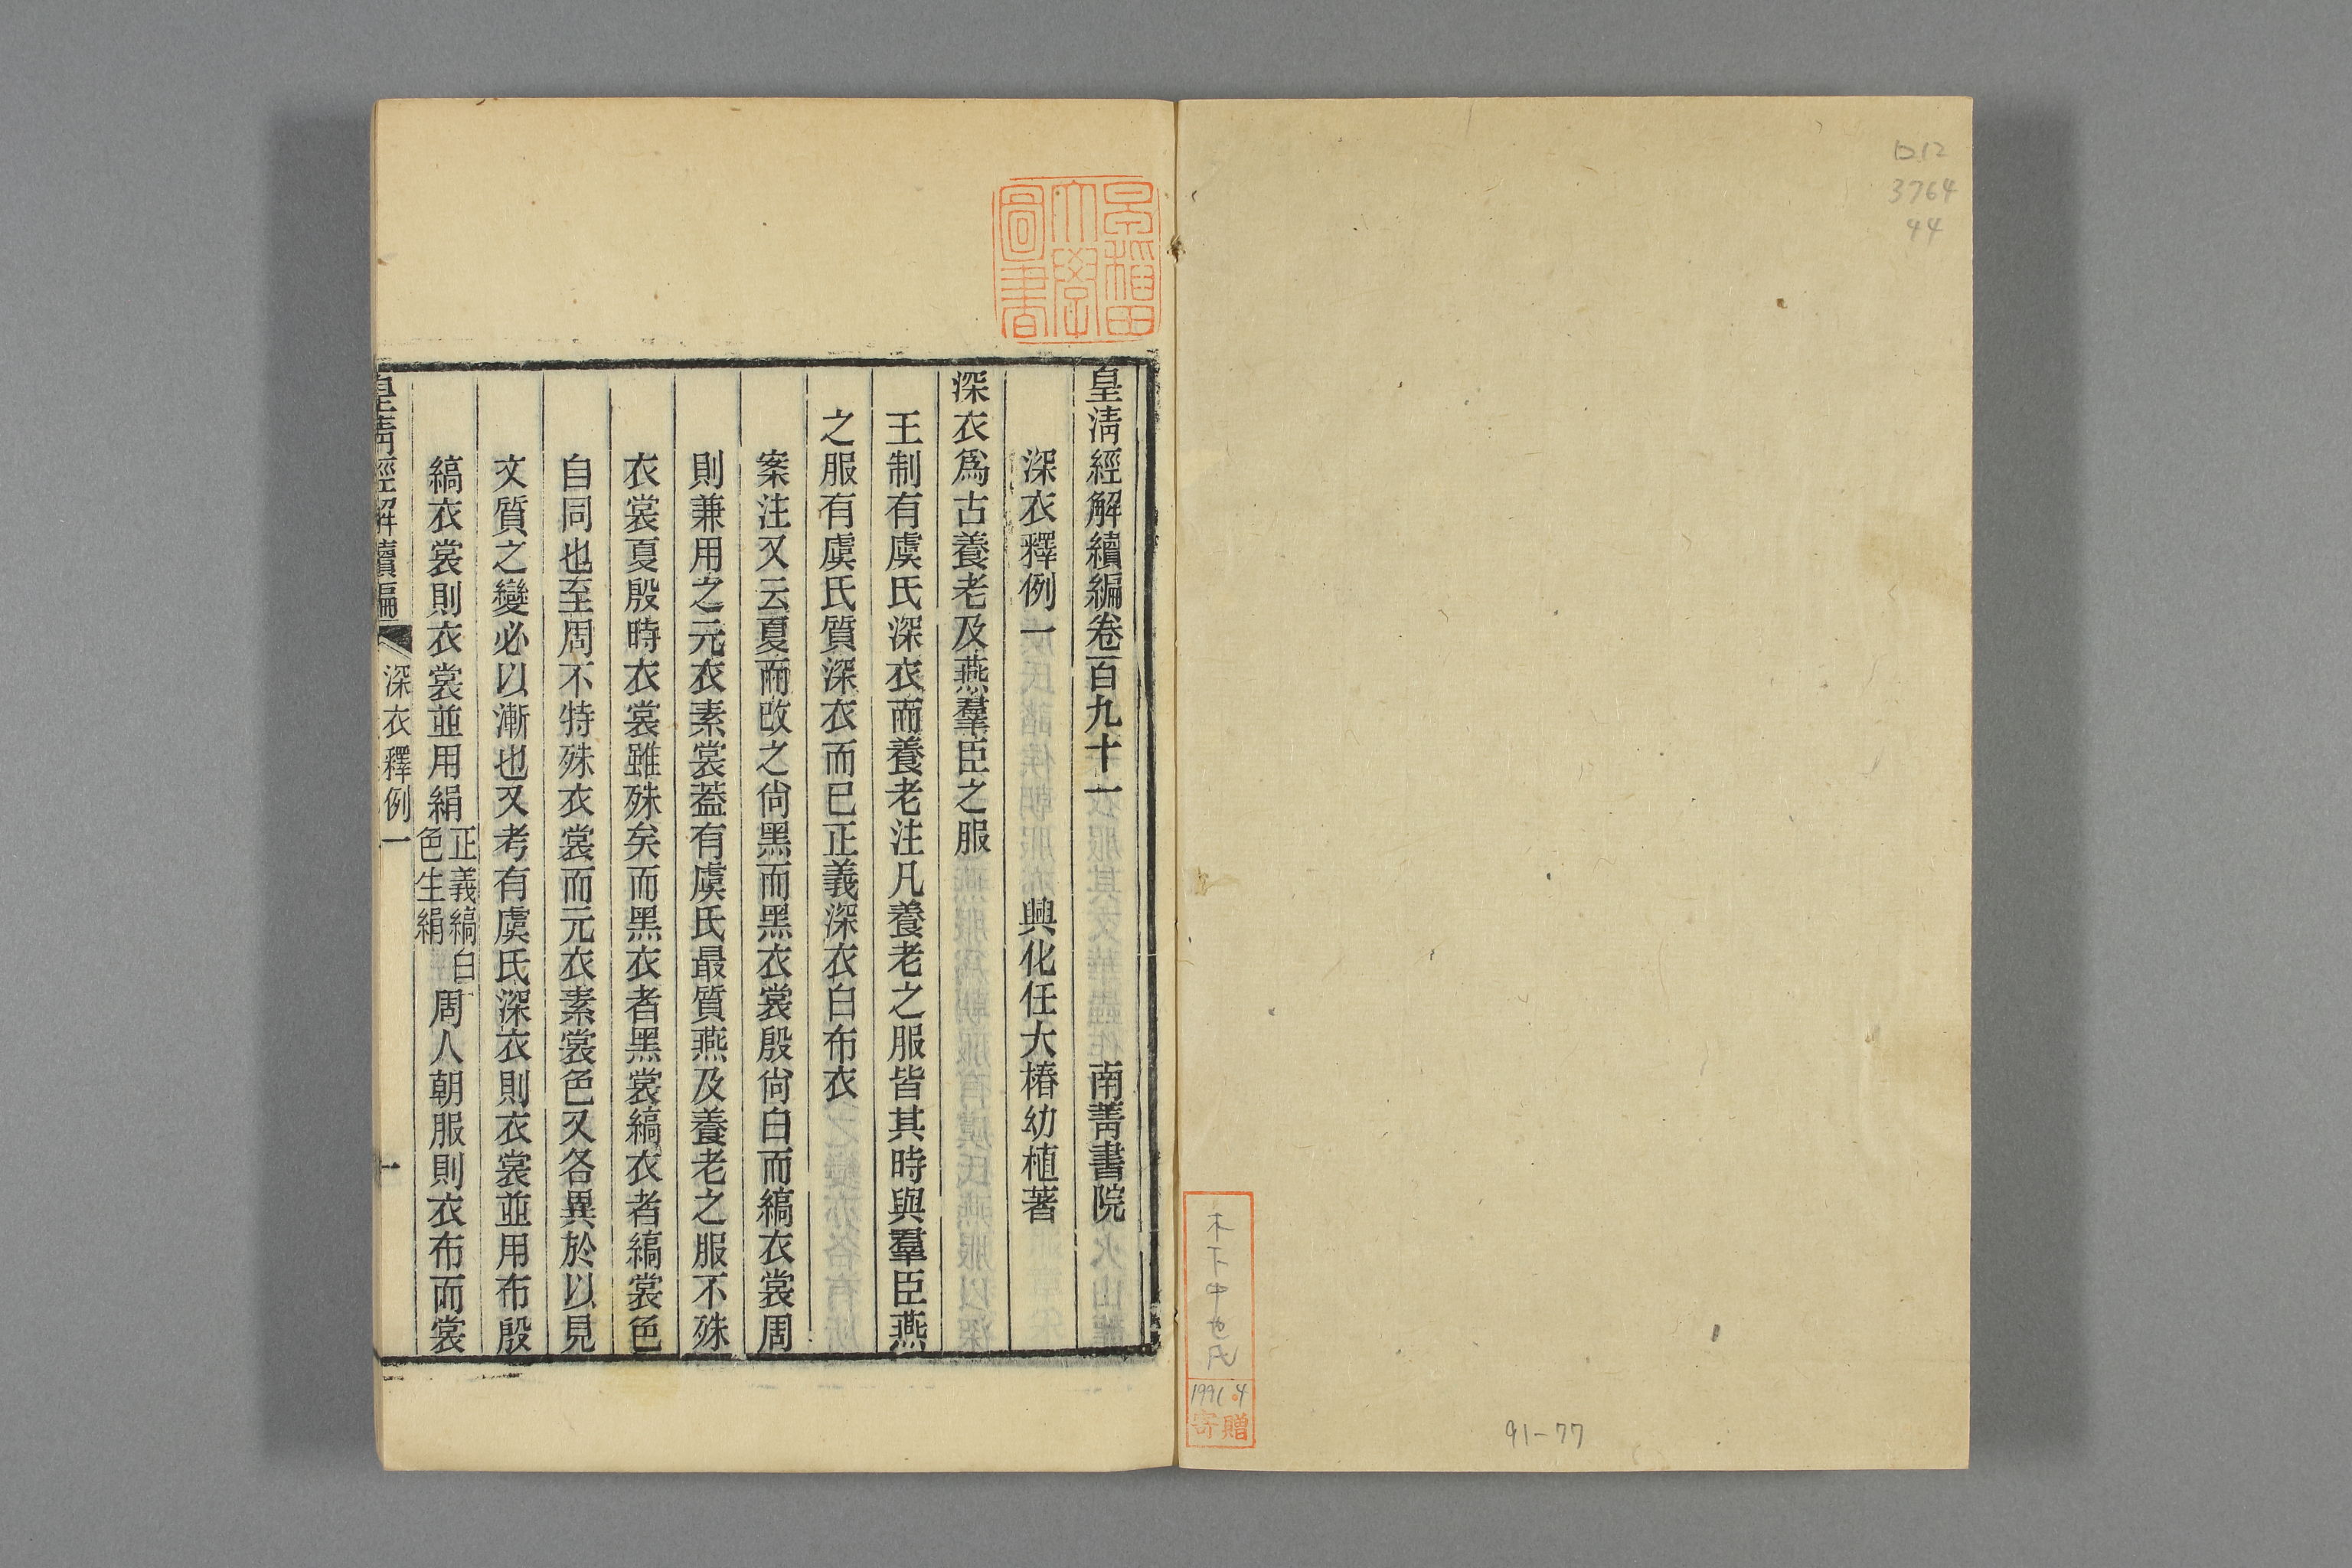 口12
3764
44
木下中也氏
1991.4
寄贈
91-77
早稲田
大學
圖書
皇淸經解續編卷百九十一　南菁書院
深衣釋例一　興化任大椿幼植著
深衣爲古養老及燕羣臣之服
王制有虞氏深衣而養老注凡養老之服皆其時與羣臣燕
之服有虞氏質深衣而已正義深衣白布衣
案注又云夏而改之尙黑而黑衣裳殷尙白而縞衣裳周
則兼用之元衣素裳蓋有虞氏最質燕及養老之服不殊
衣裳夏殷時衣裳雖殊矣而黑衣者黑裳縞衣者縞裳色
自同也至周不特殊衣裳而元衣素裳色又各異於以見
文質之變必以漸也又考有虞氏深衣則衣裳並用布殷
縞衣裳則衣裳並用絹
正義縞白
色生絹
周人朝服則衣布而裳
皇淸經解續編　深衣釋例一　一